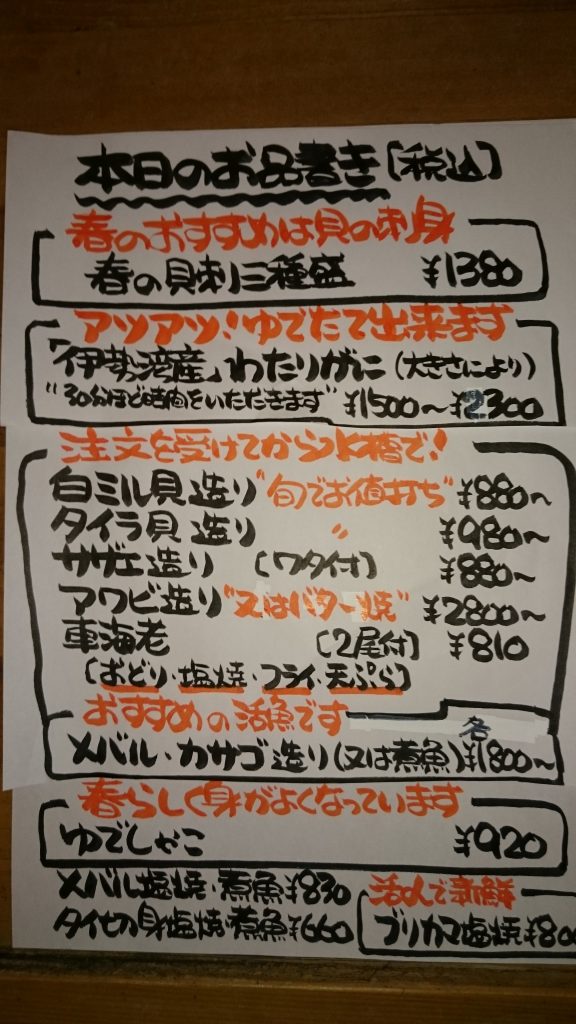 本日のお品書き〔税込〕
春のおすすめは貝の刺身
春の貝刺し三種盛 ¥1380
アツアツ!ゆでたて出来ます
「伊勢湾産」わたりがに(大きさにより)
"30分ほど時間をいただきます" ¥1500〜¥2300
注文を受けてから水槽で!
白ミル貝造り"旬でお値打ち" ¥880〜
タイラ貝造り 〃 ¥980〜
サザエ造り 〔ワタ付〕 ¥880〜
アワビ造り"又はバター焼" ¥2800〜
車海老 〔2尾付〕 ¥810
〔おどり・塩焼・フライ・天ぷら〕
おすすめの活魚です
メバル・カサゴ造り(又は煮魚)各¥1800〜
春らしく身がよくなっています
ゆでしゃこ ¥920
メバル塩焼・煮魚¥830
タイ切身塩焼・煮魚¥660
活〆で新鮮
ブリカマ塩焼¥800